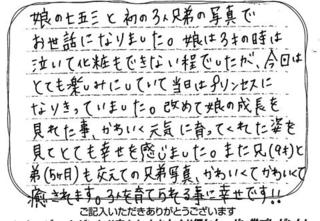 娘の七五三と初の3人兄弟の写真で
お世話になりました。娘は3才の時は
泣いて化粧もできない程でしたが、今回は
とても楽しみにしていて当日はプリンセスに
なりきっていました。改めて娘の成長を
見れた事、かわいく元気に育ってくれた姿を
見てとても幸せを感じました。また兄(9才)と
弟(5ヶ月)も交えての兄弟写真、かわいくてかわいくて
癒されます。3人を育てられる事に幸せです!!
ご記入いただきありがとうございます